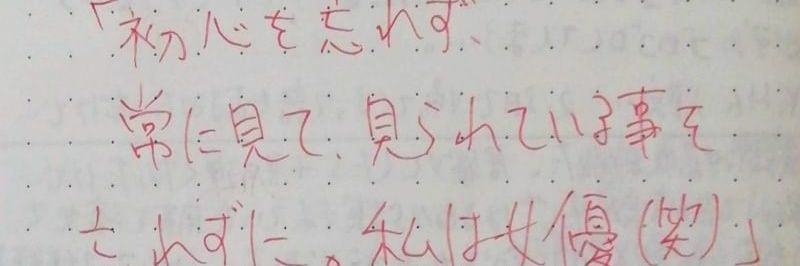 「初心を忘れず、
常に見て、見られている事を
忘れずに。私は女優(笑)」